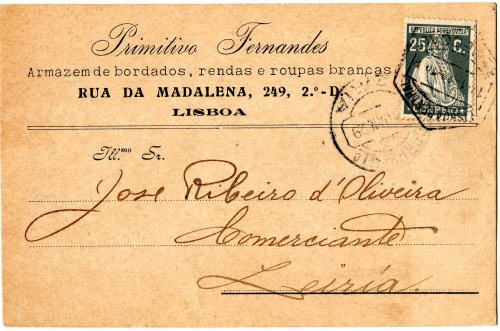 Primitivo Fernandes
Armazem de bordados, rendas e roupas brancas
RUA DA MADALENA, 249, 2.º-D.
LISBOA
25 C.
Ill.mo Sr.
José Ribeiro d'Oliveira
Comerciante
Leiria